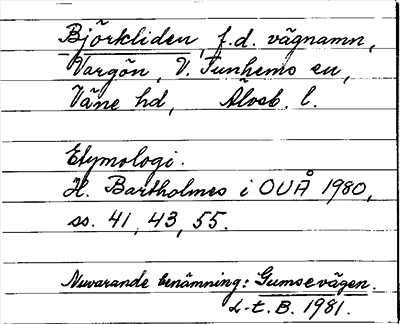 Björkliden, f.d. vägnamn,
Vargön, V. Tunhems sn,
Väne hd, Älvsb. l.
Etymologi.
H. Bartholmes i OUÅ 1980,
ss. 41, 43, 55.
Nuvarande benämning: Gumsevägen.
L-t. B. 1981.